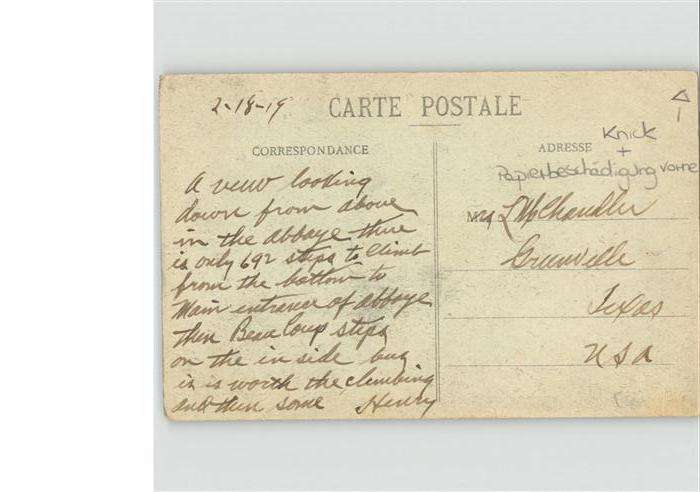 2-18-19
CARTE POSTALE
CORRESPONDANCE
ADRESSE
Knick
+
Papierbeschädigung vorne
A view looking
down from above
in the abbaye there
is only 692 steps to climb
from the bottom to
Main entrance of abbaye
then Beau Coup steps
on the in side but
is is worth the climbing
and then some Henry
L M Chandler
Greenville
Texas
U S A